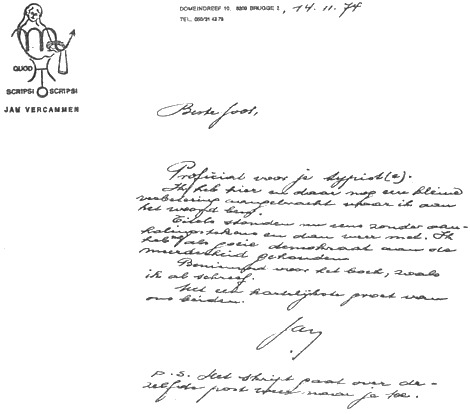 DOMEINDREEF 10, 8200 BRUGGE 2, 14.11.74
TEL. 050/31 42 75
m
QUOD
SCRIPSI SCRIPSI
JAN VERCAMMEN
Beste Joos,
Proficiat voor je typist(e).
Ik heb hier en daar nog een kleine
verbetering aangebracht waar ik aan
het woord ben.
Titels stonden nu eens zonder aan-
halingstekens en dan weer met. Ik
heb me als goeie demokraat aan de
meerderheid gehouden.
Benieuwd voor het boek, zoals
ik al schreef.
Met een hartelijkste groet van
ons beiden.
Jan
P.S. Het skript gaat over de-
zelfde post weer naar je toe.